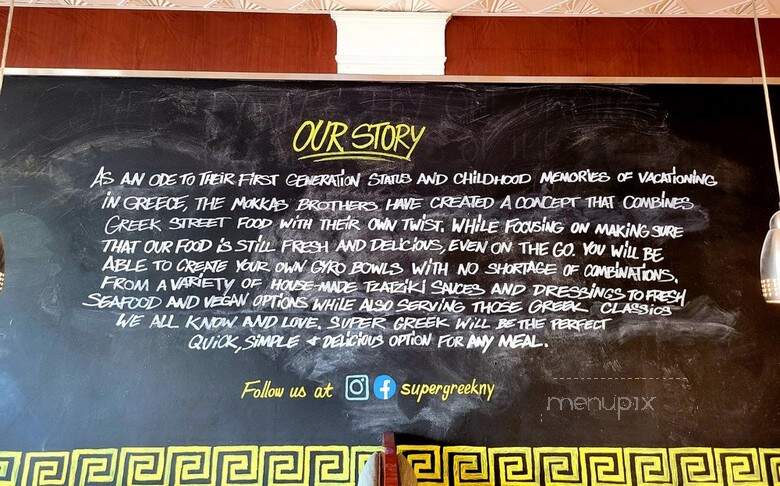 OUR STORY
AS AN ODE TO THEIR FIRST GENERATION STATUS AND CHILDHOOD MEMORIES OF VACATIONING
IN GREECE, THE MOKKAS BROTHERS HAVE CREATED A CONCEPT THAT COMBINES
GREEK STREET FOOD WITH THEIR OWN TWIST. WHILE FOCUSING ON MAKING SURE
THAT OUR FOOD IS STILL FRESH AND DELICIOUS, EVEN ON THE GO. YOU WILL BE
ABLE TO CREATE YOUR OWN GYRO BOWLS WITH NO SHORTAGE OF COMBINATIONS.
FROM A VARIETY OF HOUSE-MADE TZATZIKI SAUCES AND DRESSINGS TO FRESH
SEAFOOD AND VEGAN OPTIONS WHILE ALSO SERVING THOSE GREEK CLASSICS
WE ALL KNOW AND LOVE. SUPER GREEK WILL BE THE PERFECT
QUICK, SIMPLE & DELICIOUS OPTION FOR ANY MEAL.
Follow us at f supergreekny
menupix